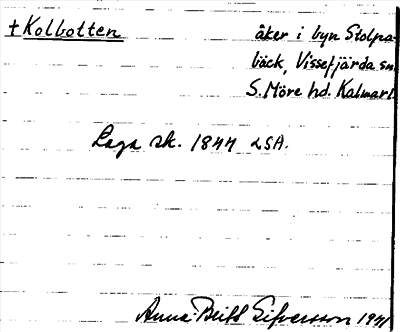 +Kolbotten
åker i byn Stolpa-
bäck, Vissefjärda sn
S. Möre hd. Kalmarl.
Laga sk. 1844 LSA.
Anna-Britt Sifversson 1941